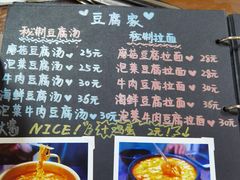 豆腐家
秘制豆腐汤 秘制拉面
蘑菇豆腐汤 25元 蘑菇豆腐拉面 28元
泡菜豆腐汤 25元 泡菜豆腐拉面 28元
牛肉豆腐汤 30元 牛肉豆腐拉面 30元
海鲜豆腐汤 36元 海鲜豆腐拉面 36元
泡菜牛肉豆腐汤 30元 泡菜牛肉豆腐拉面 30元
NICE! 鸡蛋 2元1个